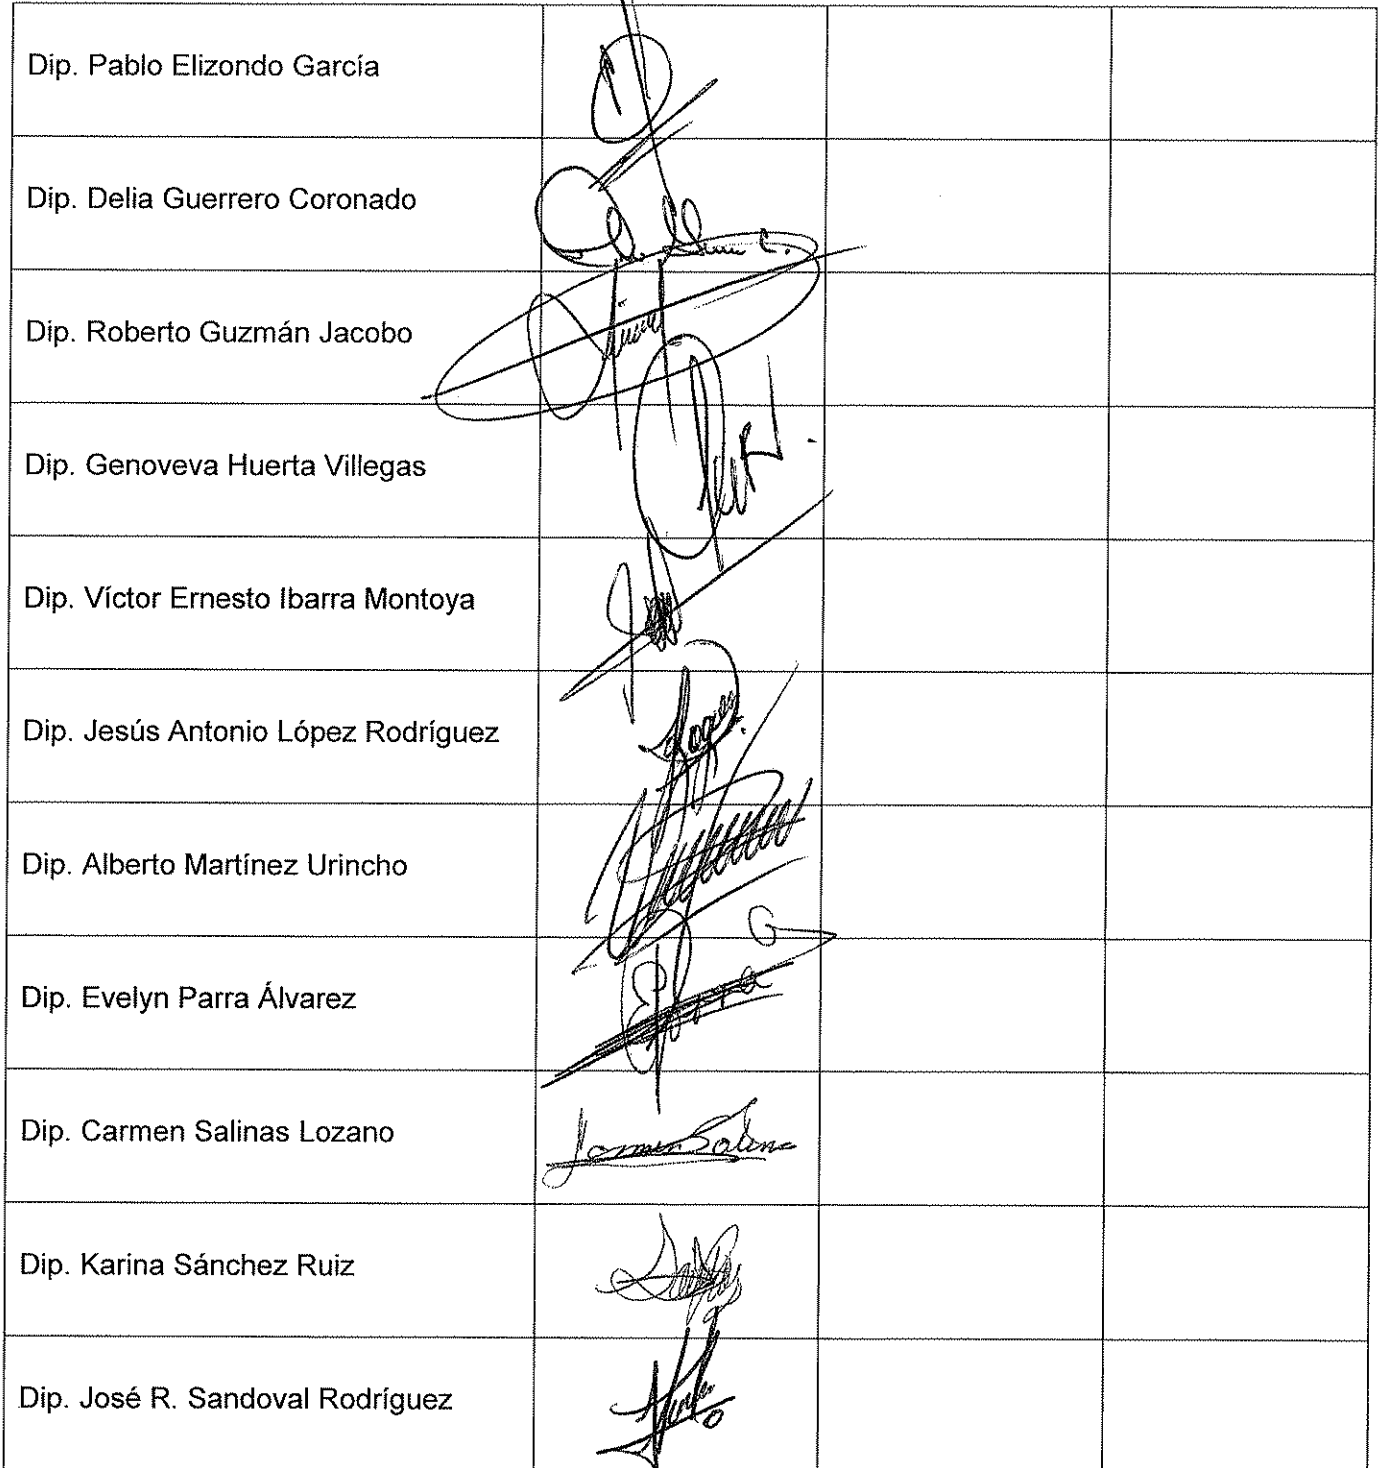 Dip. Pablo Elizondo García
Dip. Delia Guerrero Coronado
Dip. Roberto Guzmán Jacobo
Dip. Genoveva Huerta Villegas
Dip. Víctor Ernesto Ibarra Montoya
Dip. Jesús Antonio López Rodríguez
Dip. Alberto Martínez Urincho
Dip. Evelyn Parra Álvarez
Dip. Carmen Salinas Lozano
Dip. Karina Sánchez Ruiz
Dip. José R. Sandoval Rodríguez